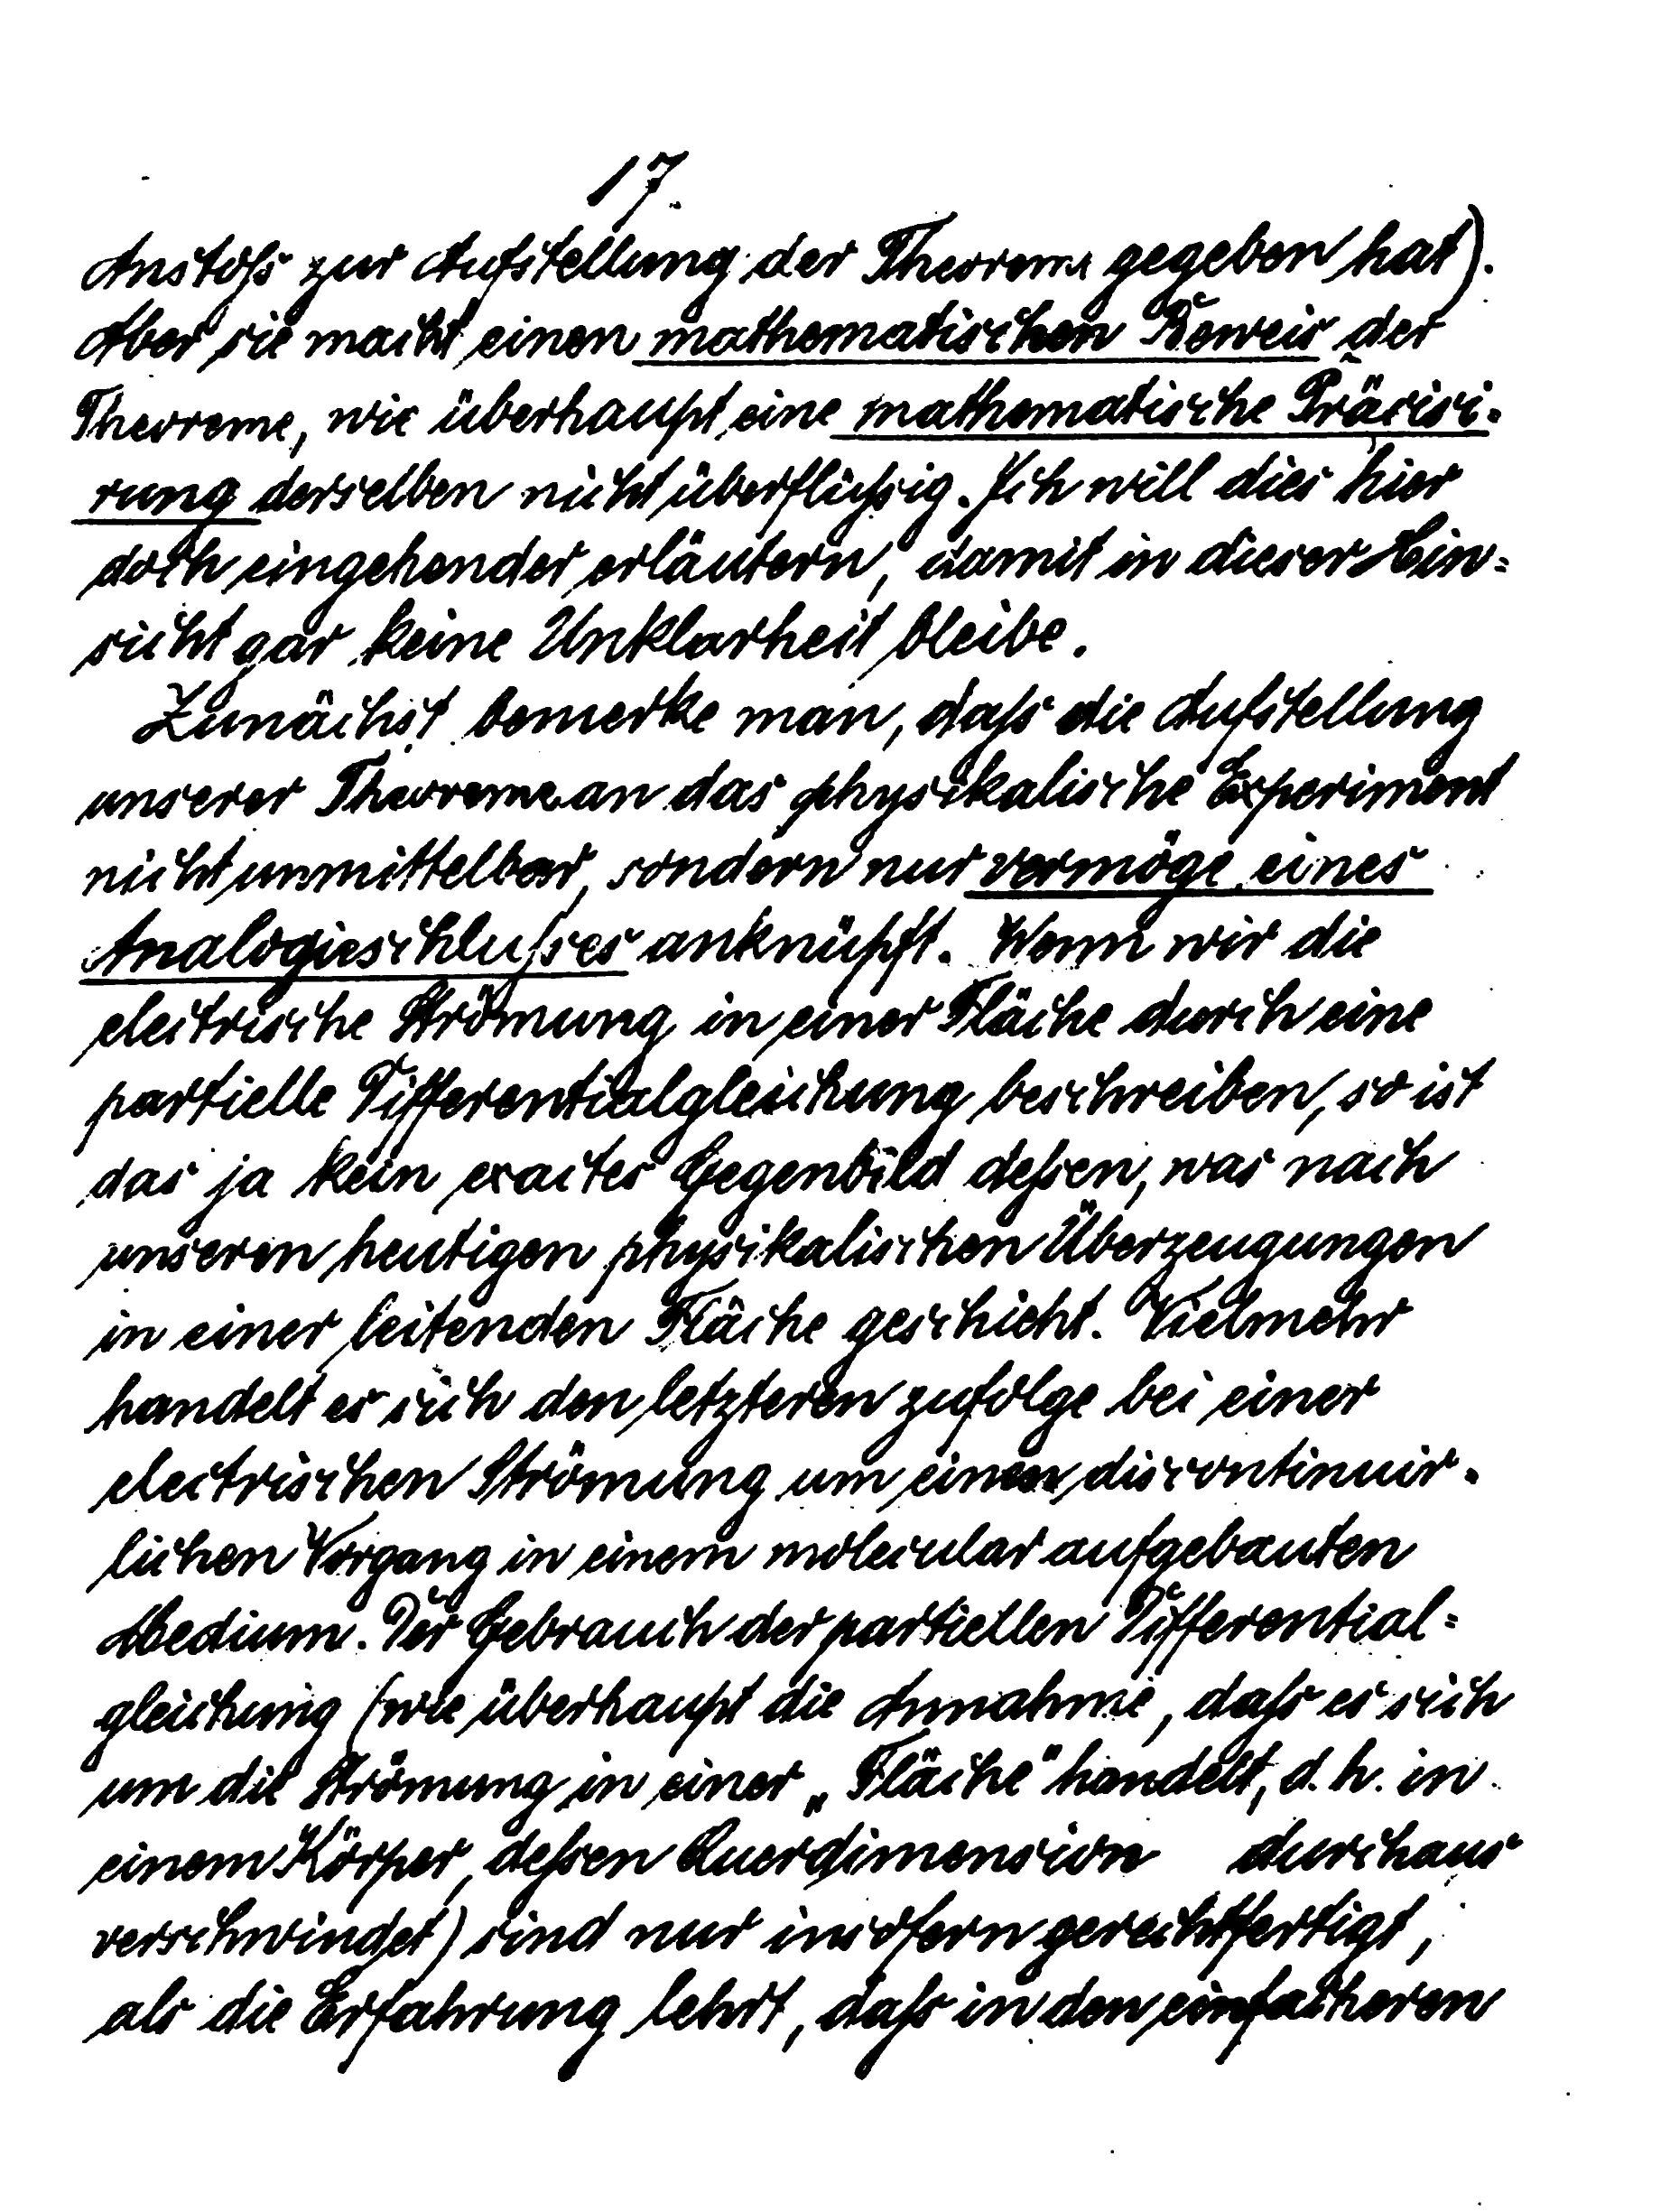 17.
Anstoß zur Aufstellung der Theoreme gegeben hat).
Aber sie macht einen mathematischen Beweis der
Theoreme, wie überhaupt eine mathematische Präcisi-
rung derselben nicht überflüßig. Ich will dies hier
doch eingehender erläutern, damit in dieser Hin=
sicht gar keine Unklarheit bleibe.
Zunächst bemerke man, daß die Aufstellung
unserer Theoreme an das physikalische Experiment
nicht unmittelbar, sondern nur vermöge eines
Analogieschlußes anknüpft. Wenn wir die
electrische Strömung in einer Fläche durch eine
partielle Differentialgleichung beschreiben, so ist
das ja kein exactes Gegenbild deßen, was nach
unseren heutigen physikalischen Überzeugungen
in einer leitenden Fläche geschieht. Vielmehr
handelt es sich den letzteren zufolge bei einer
electrischen Strömung um einen discontinuir-
lichen Vorgang in einem molecular aufgebauten
Medium. Der Gebrauch der partiellen Differential=
gleichung (wie überhaupt die Annahme, daß es sich
um die Strömung in einer „Fläche" handelt, d. h. in
einem Körper, deßen Querdimension durchaus
verschwindet) sind nur insofern gerechtfertigt,
als die Erfahrung lehrt, daß in den einfacheren